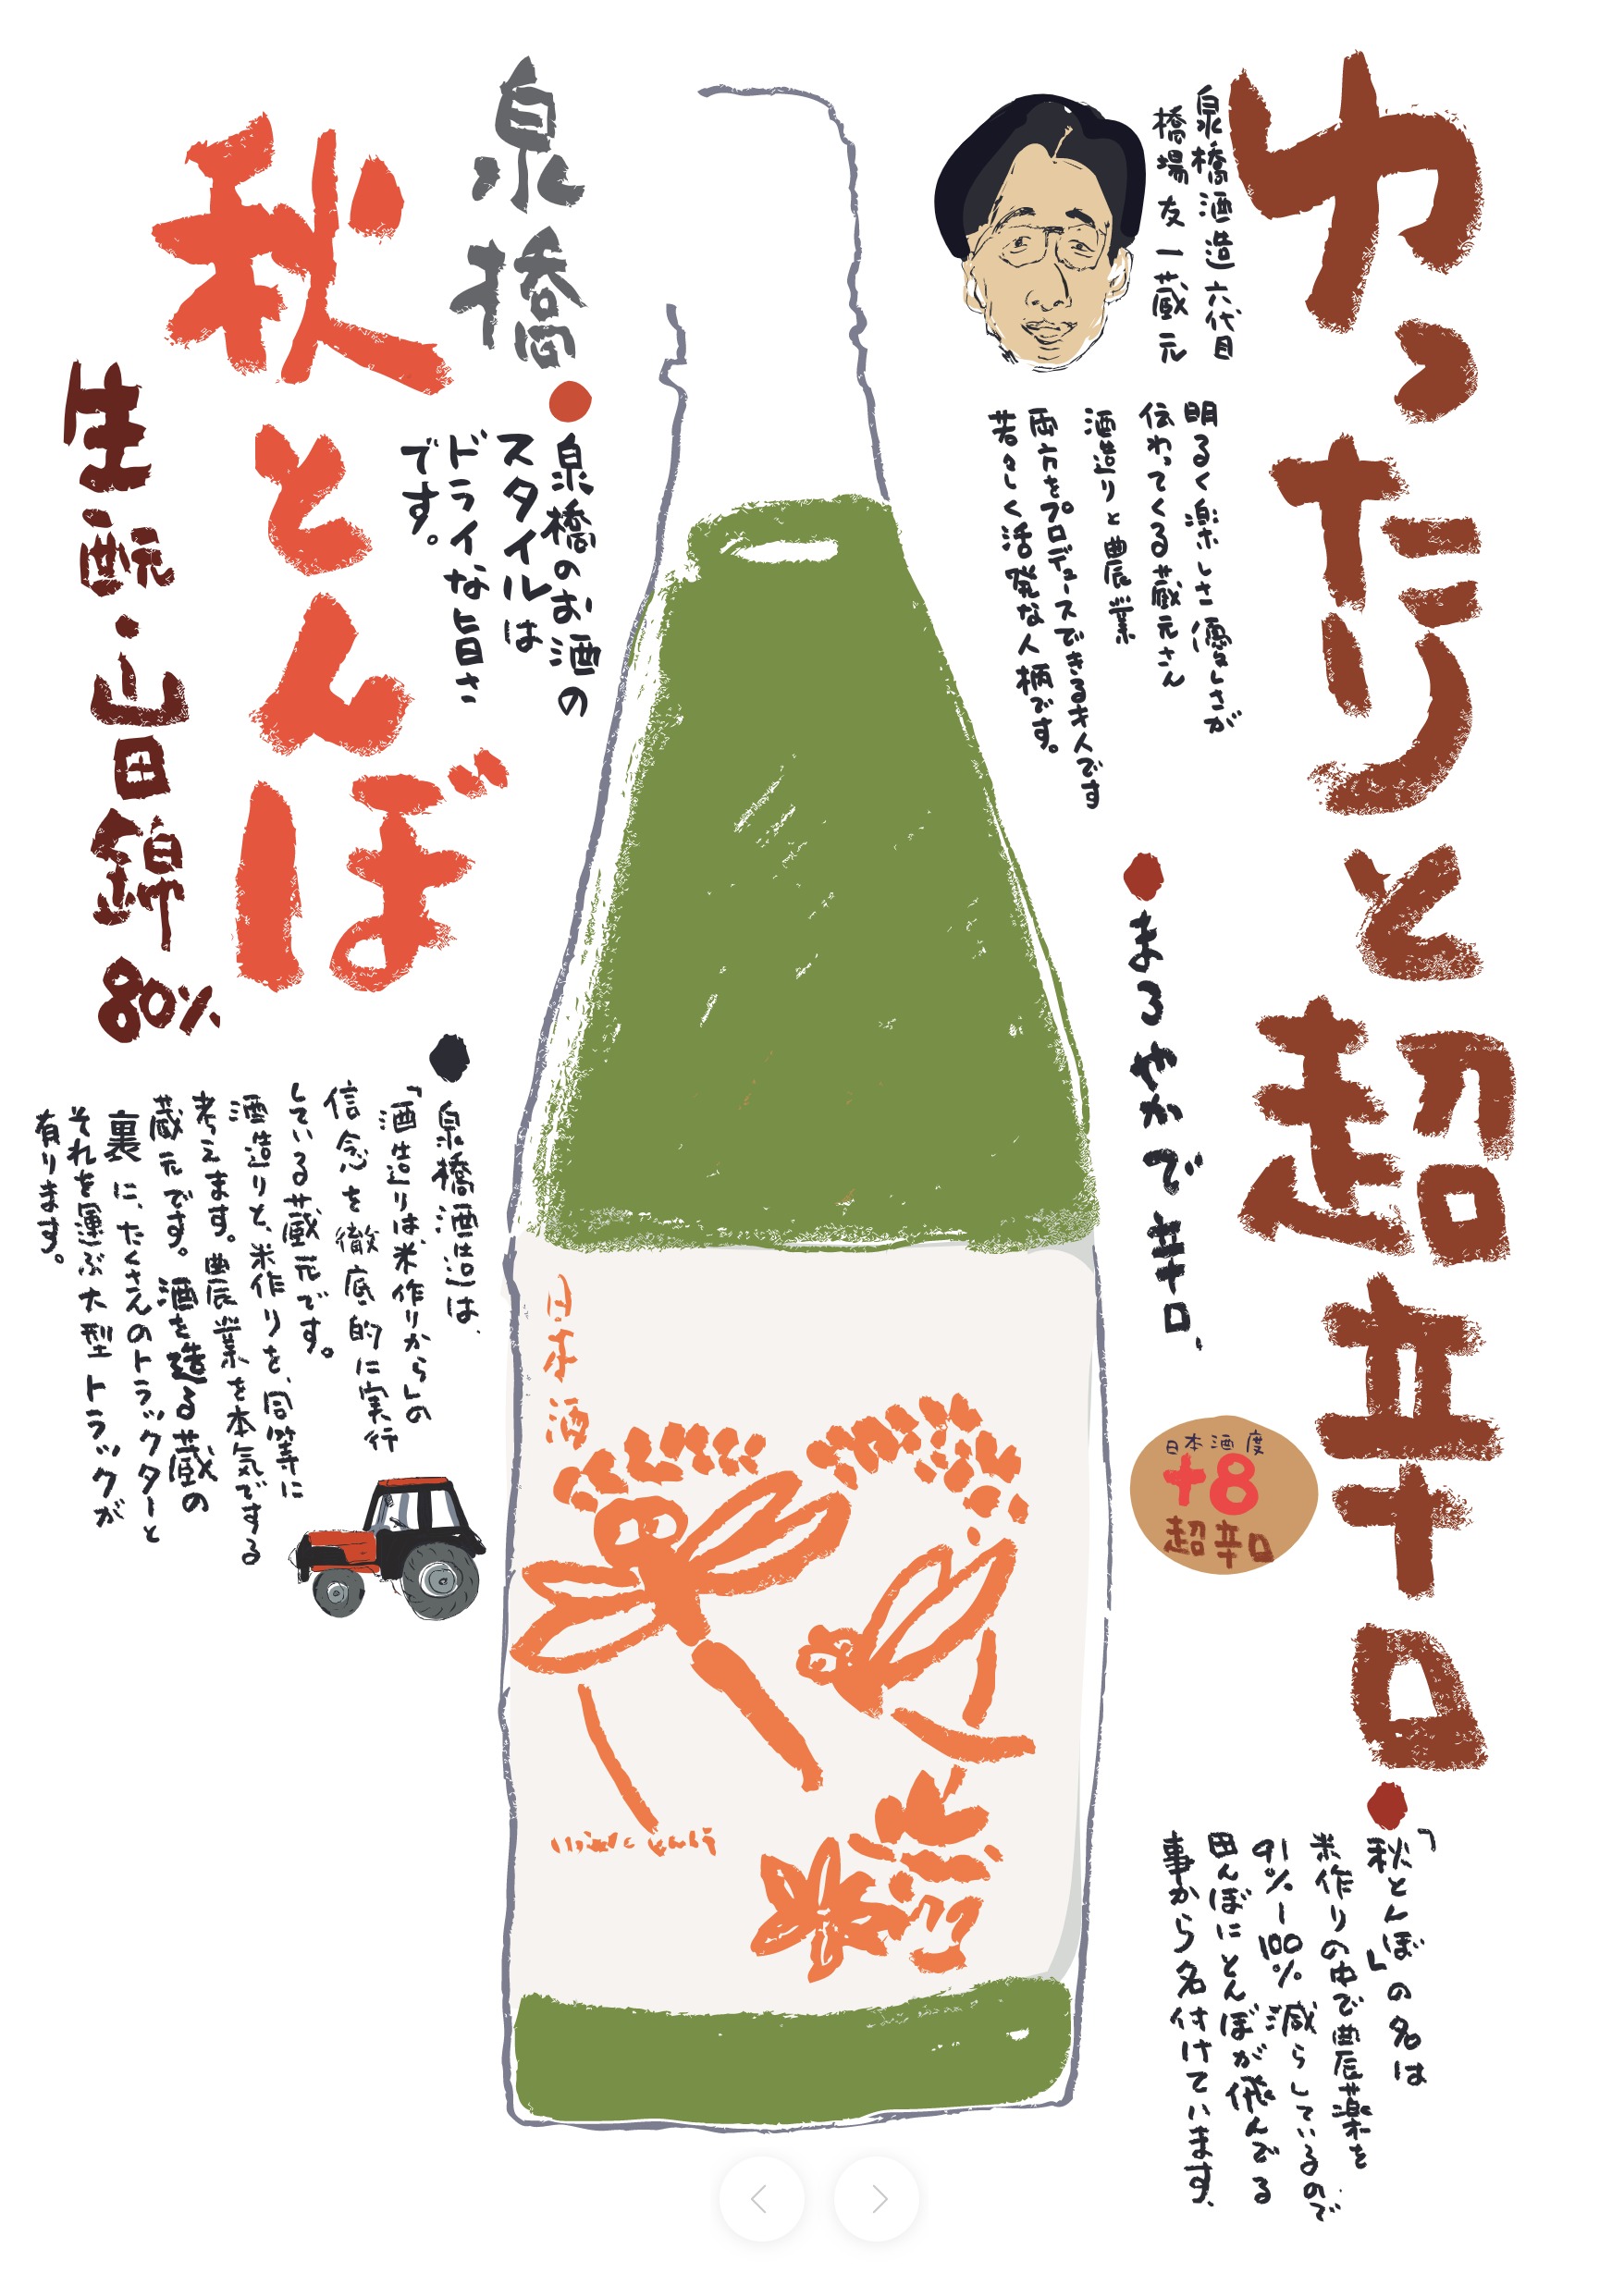 ゆったりと超辛口
泉橋酒造六代目
橋場友一蔵元
明るく楽しさ優しさが
伝わってくる蔵元さん
酒造りと農業
両方をプロデュースできるキ人です
若々しく活発な人柄です。
まろやかで辛口、
日本酒度
+8
超辛口
「秋とんぼ」の名は
米作りの中で農薬を
91%-100%減らしているので
田んぼにとんぼが飛んでる
事から名付けています、
泉橋
秋とんぼ
生酛・山田錦80%
泉橋のお酒の
スタイルは
ドライな旨さ
です。
泉橋酒造は、
「酒造りは米作りから」の
信念を徹底的に実行
している蔵元です。
酒造りと、米作りを、同等に
考えます。農業を本気でする
蔵元です。酒を造る蔵の
裏に、たくさんのトラックターと
それを運ぶ大型トラックが
有ります。
日本酒